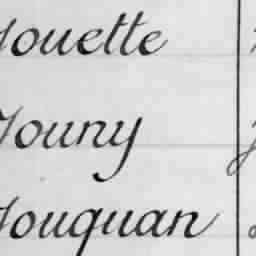 Jouette
Jouny
Jouquan